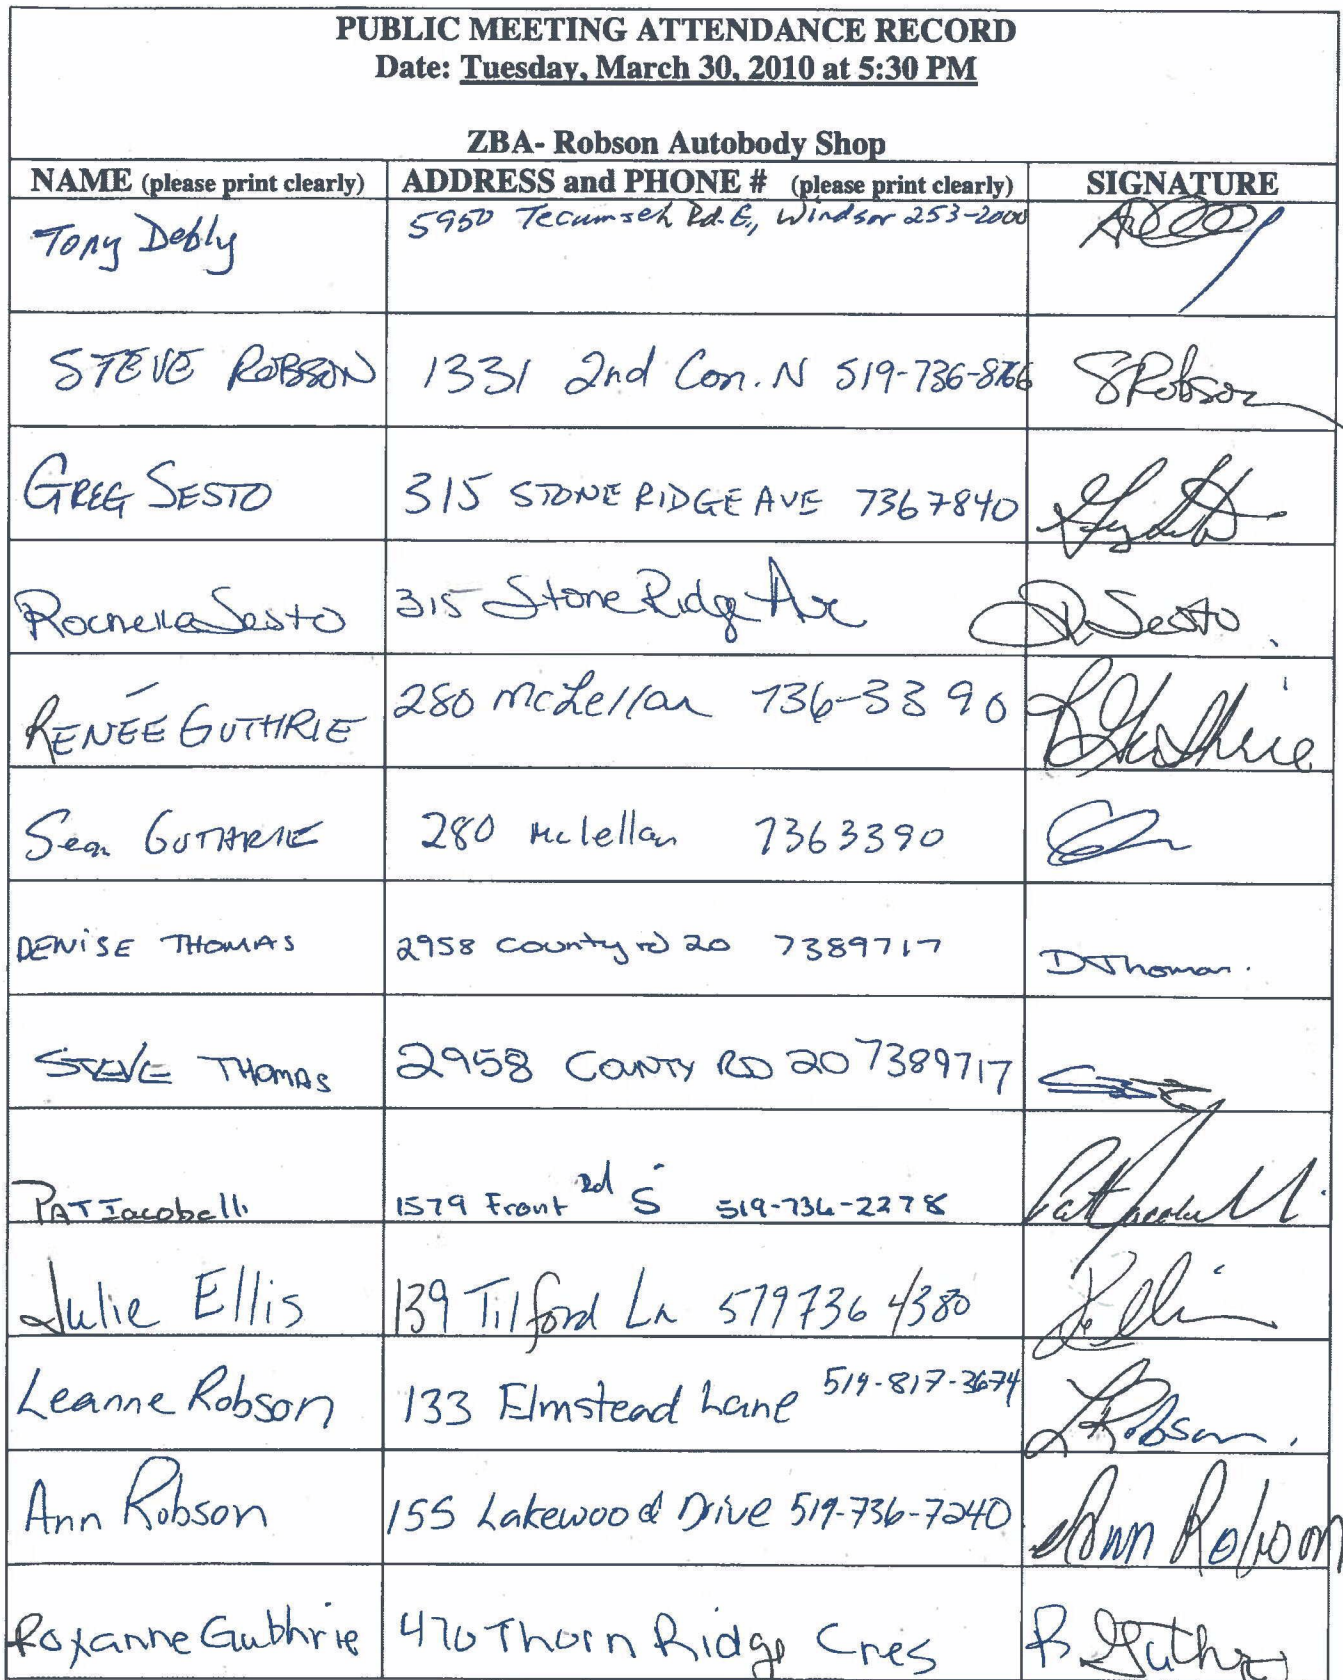 PUBLIC MEETING ATTENDANCE RECORD
Date: Tuesday, March 30, 2010 at 5:30 PM
ZBA- Robson Autobody Shop
NAME (please print clearly) ADDRESS and PHONE # (please print clearly) SIGNATURE
Tony Debly 5950 Tecumseh Rd. E., Windsor 253-2000
STEVE ROBSON 1331 2nd Con. N 519-736- SRobson
GREG SESTO 315 STONERIDGE AVE 7367840
Rochelle Sesto 315 Stone Ridge Ave R Sesto
RENÉE GUTHRIE 280 McLellan 736-3390 R Guthrie
Sean GUTHRIE 280 Mclellan 7363390
DENISE THOMAS 2958 County rd 20 7389717 D Thomas.
STEVE THOMAS 2958 COUNTY RD 20 7389717
PAT Iacobelli 1579 Front Rd S 519-736-2278 Pat Iacobelli
Julie Ellis 139 Tilford Ln 519 736 4380 J Ellis
Leanne Robson 133 Elmstead Lane 519-817-3674 L Robson.
Ann Robson 155 Lakewood Drive 519-736-7240 Ann Robson
Roxanne Guthrie 470 Thorn Ridge Cres R Guthrie